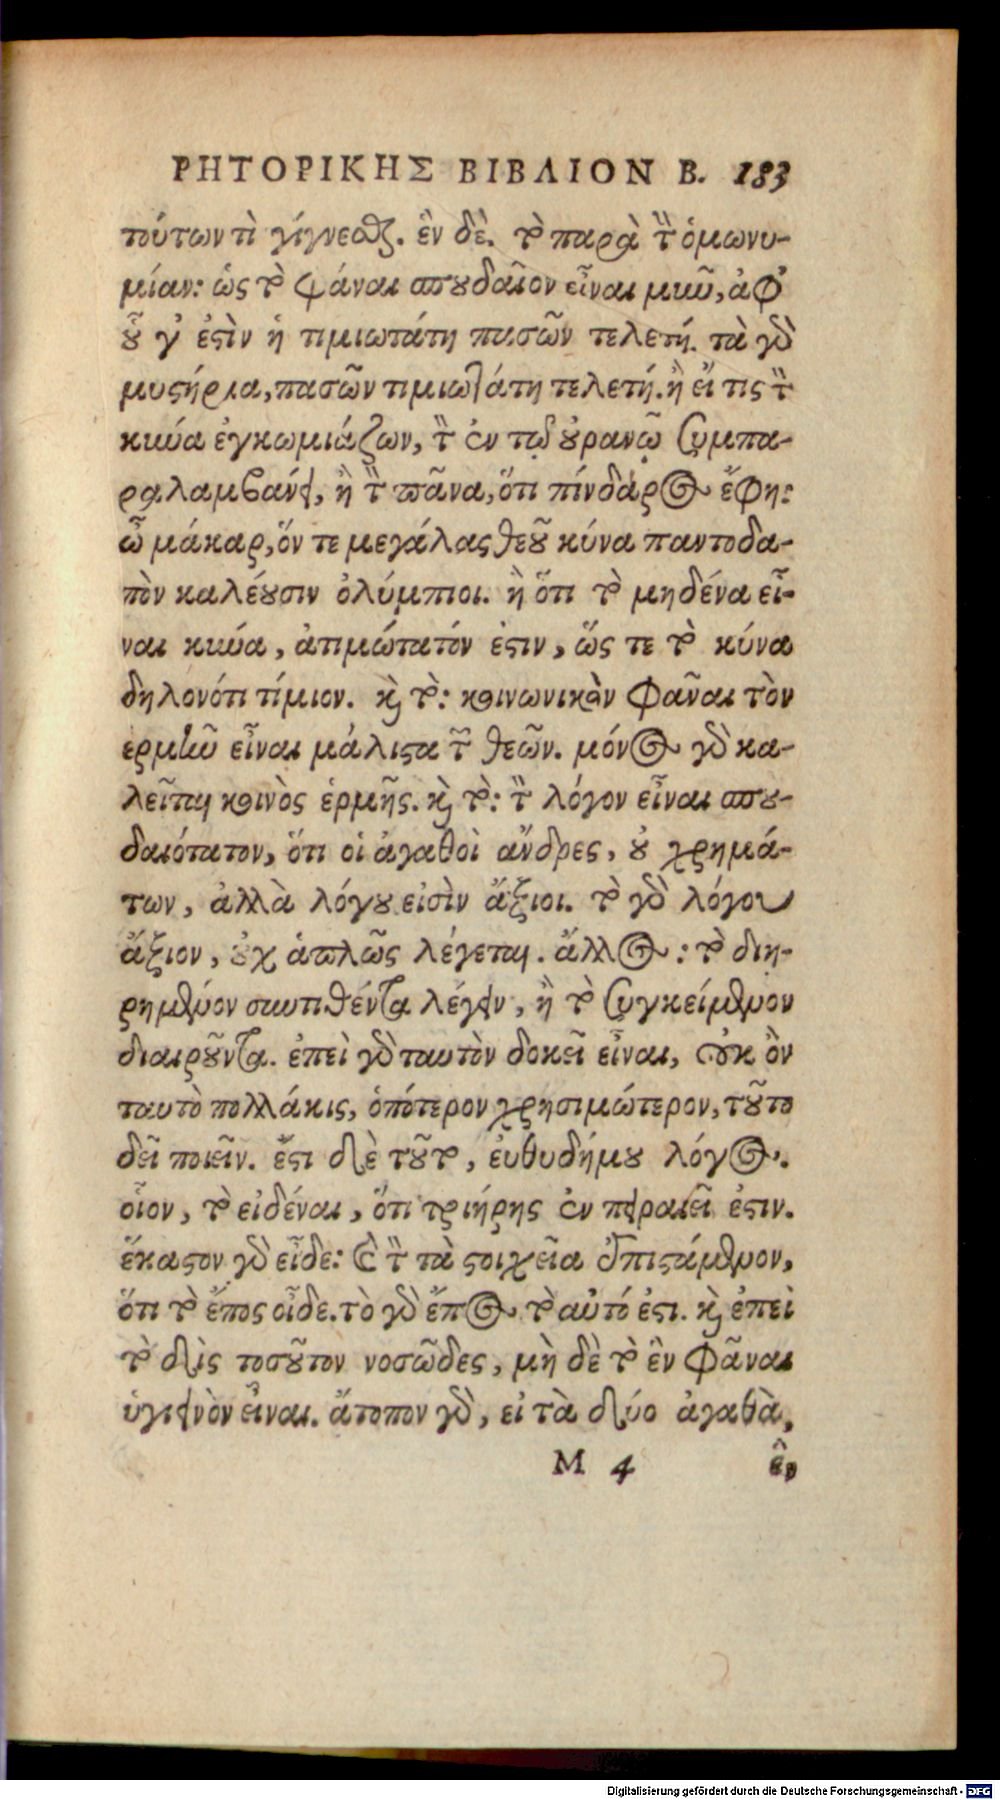 ΡΗΤΟΡΙΚΗΣ ΒΙΒΛΙΟΝ Β. 183
τούτων τὶ γίγνεσθαι. ἓν δὲ. τὸ παρὰ τὴν ὁμωνυ-
μίαν: ὡς τὸ φάναι σπουδαῖον εἶναι μῦν, ἀφ᾽
οὗ γ᾽ ἐστὶν ἡ τιμιωτάτη πασῶν τελετή. τὰ γὰρ
μυστήρια, πασῶν τιμιωτάτη τελετή. ἢ εἴ τις τὸν
κύνα ἐγκωμιάζων, τὸν ἐν τῷ οὐρανῷ συμπα-
ραλαμβάνει, ἢ τὸν πᾶνα, ὅτι πίνδαρος ἔφη:
ὦ μάκαρ, ὅν τε μεγάλας θεοῦ κύνα παντοδα-
πὸν καλέουσιν ὀλύμπιοι. ἢ ὅτι τὸ μηδένα εἶ-
ναι κύνα, ἀτιμώτατόν ἐστιν, ὥς τε τὸ κύνα
δηλονότι τίμιον. καὶ τὸ: κοινωνικὸν φᾶναι τὸν
ερμῆν εἶναι μάλιστα τῶν θεῶν. μόνος γὰρ κα-
λεῖται κοινὸς ἑρμῆς. καὶ τὸ: τὸν λόγον εἶναι σπου-
δαιότατον, ὅτι οἱ ἀγαθοὶ ἄνδρες, οὐ χρημά-
των, ἀλλὰ λόγου εἰσὶν ἄξιοι. τὸ γὰρ λόγου
ἄξιον, οὐχ ἁπλῶς λέγεται. ἄλλος: τὸ διη-
ρημένον συντιθέντα λέγειν, ἢ τὸ συγκείμενον
διαιροῦντα. ἐπεὶ γὰρ ταυτὸν δοκεῖ εἶναι, οὐκ ὂν
ταυτὸ πολλάκις, ὁπότερον χρησιμώτερον, τοῦτο
δεῖ ποιεῖν. ἔστι δὲ τοῦτο, ἐυθυδήμου λόγος.
οἷον, τὸ εἰδέναι, ὅτι τριήρης ἐν πειραιεῖ ἐστιν.
ἕκαστον γὰρ εἶδε: καὶ τὸν τὰ στοιχεῖα ἐπιστάμενον,
ὅτι τὸ ἔπος οἶδε. τὸ γὰρ ἔπος τὸ αὐτό ἐστι. καὶ ἐπεὶ
τὸ δὶς τοσοῦτον νοσῶδες, μὴ δὲ τὸ ἓν φᾶναι
ὑγιεινὸν εἶναι. ἄτοπον γὰρ, εἰ τὰ δύο ἀγαθὰ,
M 4 ἓν
Digitalisierung gefördert durch die Deutsche Forschungsgemeinschaft - DFG